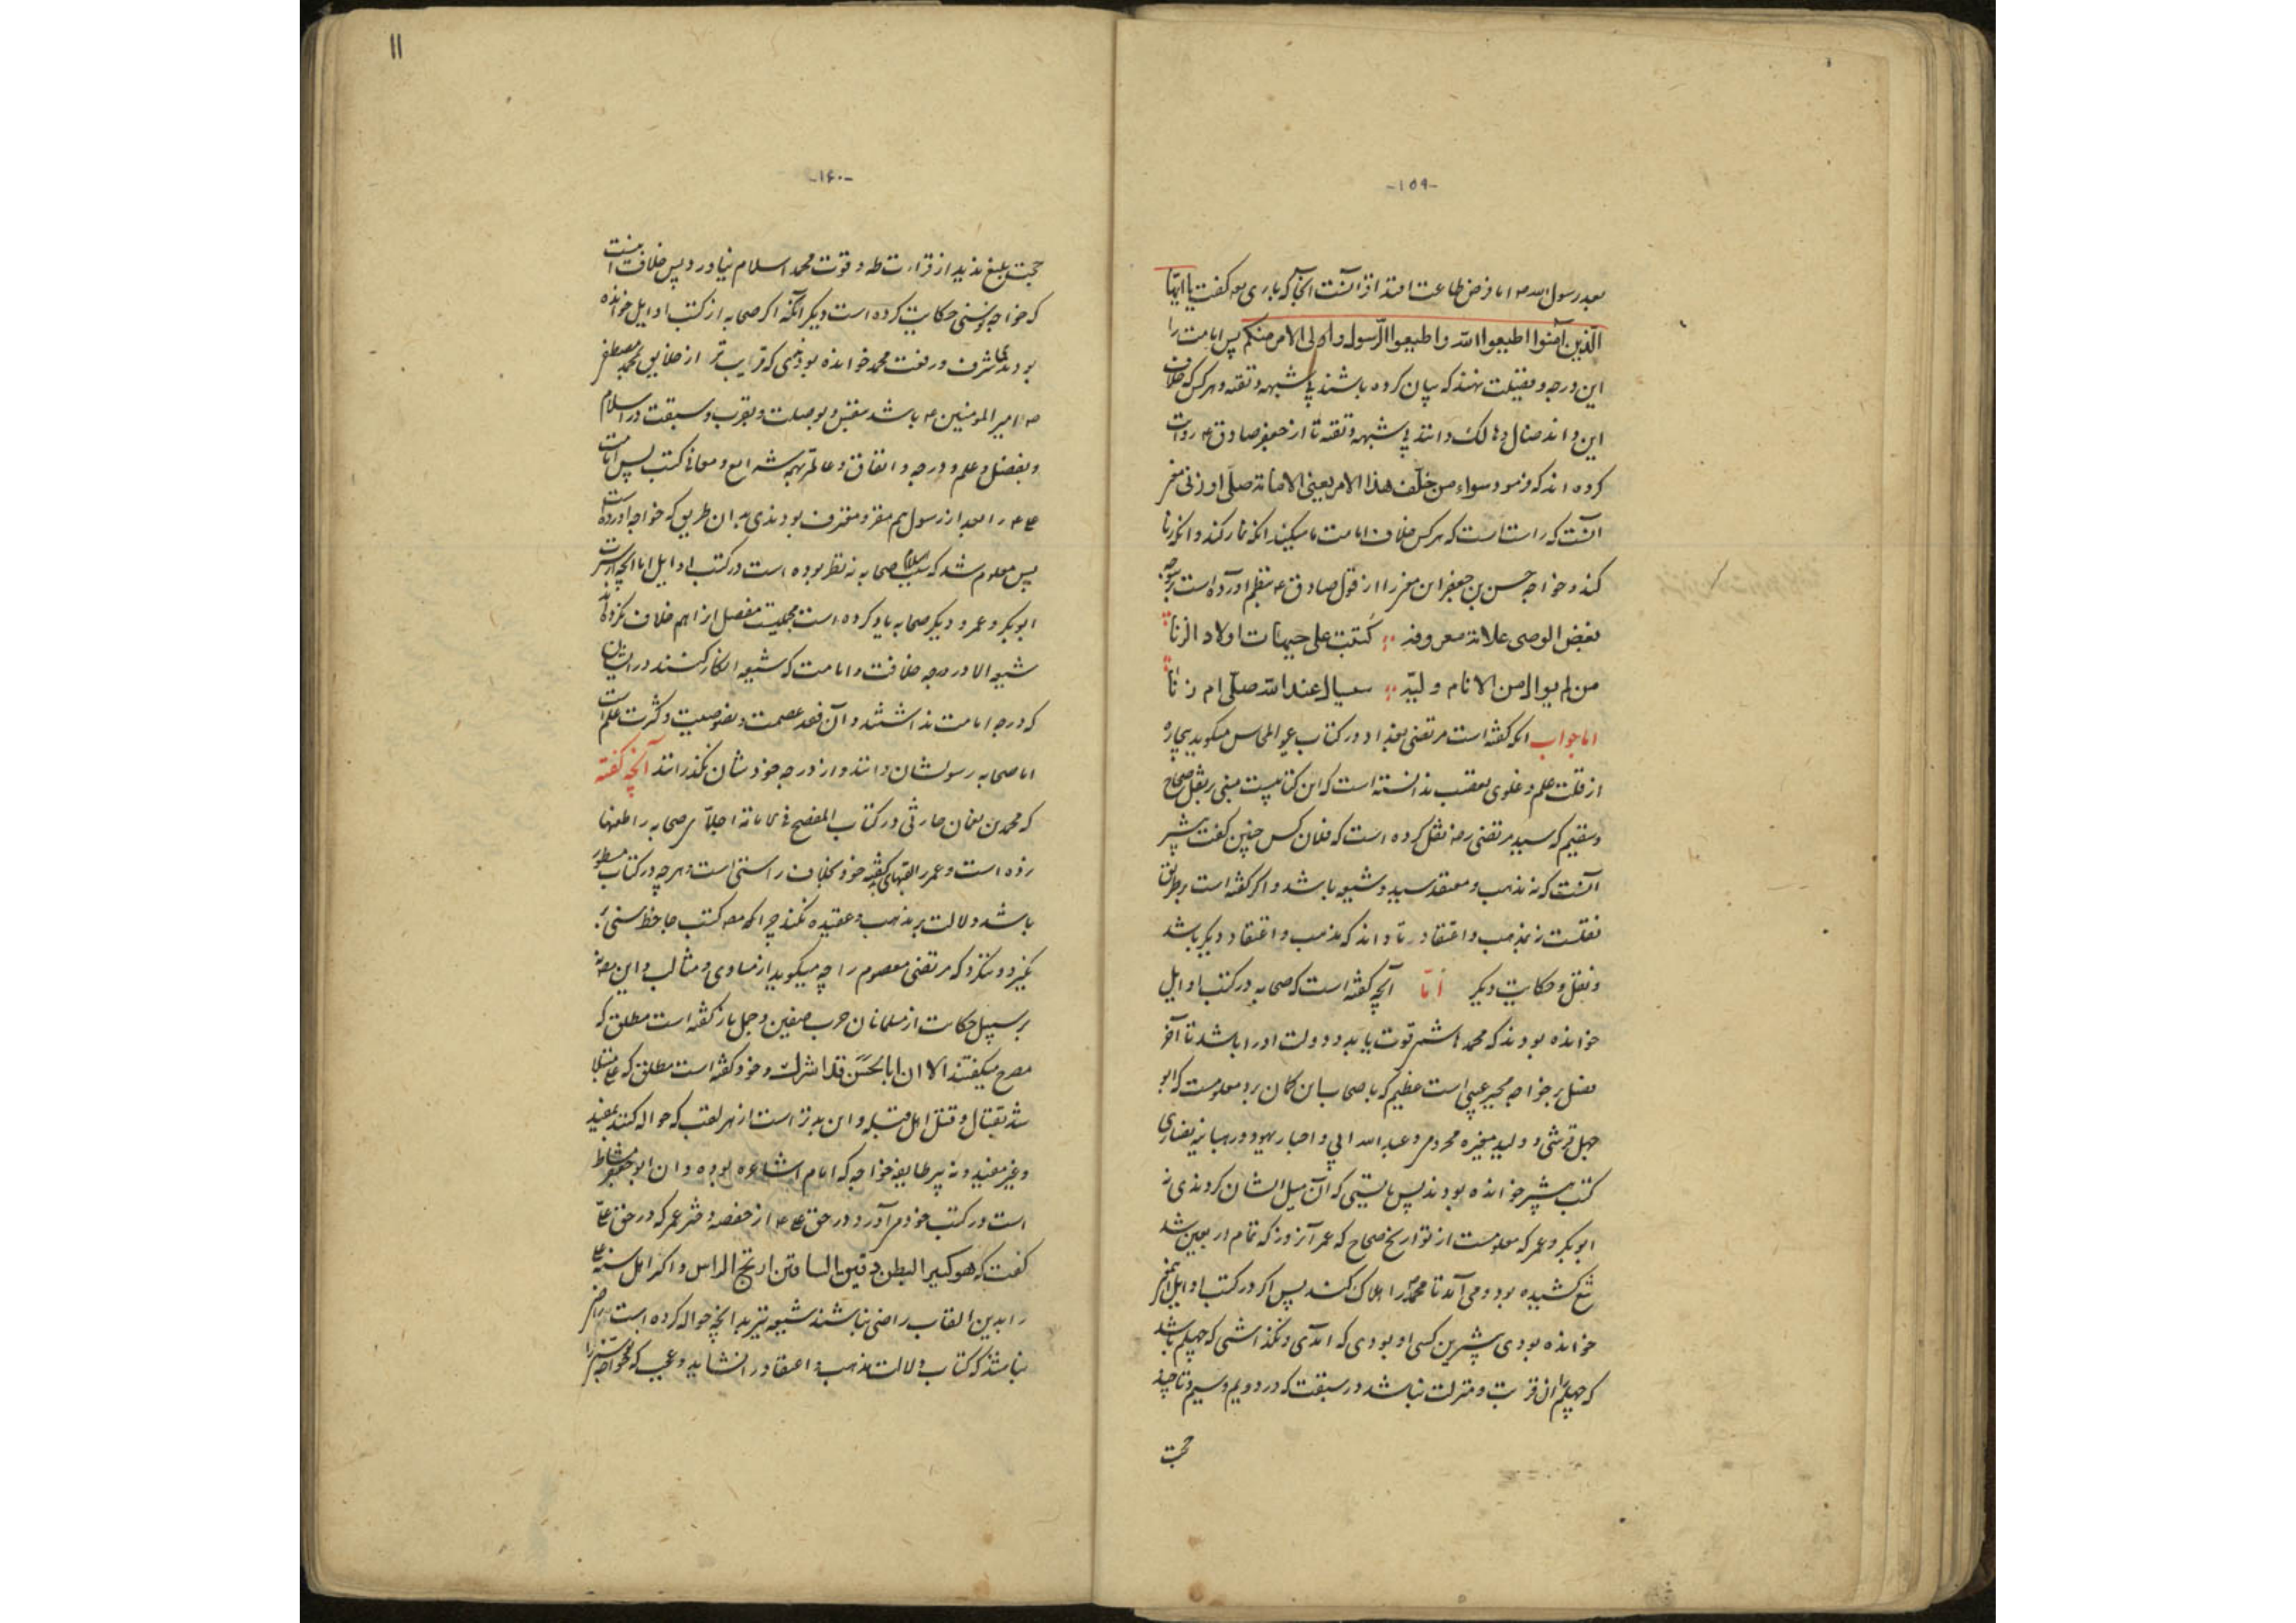 -۱۵۹-
بعد رسول الله ص امام فرض طاعت اقتدا از آنست آنجا که باری تعه گفت یا ایها
الذین آمنوا اطیعوا الله و اطیعوا الرسول و اولی الامر منکم پس امامت را
این درجه و فضیلت نهند که بیان کرده باشند بی شبهه و تقیه و هر کس که خلاف
این داند ضال و هالک دانند بی شبهه و تقیه تا از جعفر صادق ع روایت
کرده اند که فرمود سواء من خالف هذا الامر یعنی الامامة صلی او زنی
آنست که راست است که هر کس خلاف امامت ما میکند آنکه نماز کند و آنکه زنا
کند و خواجه حسن بن جعفر این را از قول صادق ع بنظم آورده است
بغض الوصی علامة معروفة کتبت علی جبهات اولاد الزنا
من لم یوال من الانام ولیّه سیان عند الله صلّی ام زنا
اما جواب آنکه گفته است مرتضی بغداد در کتاب میگوید بیچاره
از قلت علم و غلوی تعصب ندانسته است که این کتابیست مبنی بر نقل صحاح
و سقیم که سید مرتضی رضه نقل کرده است که فلان کس چنین گفت بیشتر
آنست که نه مذهب و معتقد سید و شیعه باشد و اگر گفته است بر طریق
نقلست نه مذهب و اعتقاد تا داند که مذهب و اعتقاد دیگر باشد
و نقل و حکایت دیگر امّا آنچه گفته است که صحابه در کتب اوایل
خوانده بودند که محمد هاشم قوت یابد و دولت او را باشد تا آخر
فصل بر خواجه مجبر عیبی است عظیم که با صحابه این گمان برد معلومست که ابو
جهل قرشی و ولید مغیره مخزومی و عبد الله ابی و احبار یهود و رهبانیه نصاری
کتب بیشتر خوانده بودند پس بایستی که آن میل ایشان کردندی نه
ابوبکر و عمر که معلومست از تواریخ صحاح که عمر آنروز که تمام اربعین شد
تیغ کشیده بود و می آمد تا محمد را هلاک کند پس اگر در کتب اوایل
خوانده بودی پیشترین کسی او بودی که آمدی و نگذاشتی که چهلم باشد
که چهلم را آن قربت و منزلت نباشد در سبقت که در دویم و سیم و تا چند
حجت
۱۱
-۱۶۰-
حجت بلیغ ندید از قراءت طه و قوت محمد اسلام نیاورد پس خلاف
که خواجه سنی حکایت کرده است دیگر آنکه اگر صحابه از کتب اوایل خوانده
بودند شرف و رفعت محمد خوانده بودندی که قریب تر از خلایق بمحمد مصطفی
ص امیر المومنین ع باشد بنفس و بوصلت و بقرب و سبقت در اسلام
و بفضل و علم و درجه و انفاق و عالم بهمه شرایع و معانی کتب پس امامت
علی ع را بعد از رسول هم مقر و معترف بودندی بدان طریق که خواجه آورده است
پس معلوم شد که صحابه نه نظر بوده است در کتب اوایل اما آنچه
ابوبکر و عمر و دیگر صحابه یاد کرده است مفصل از آنهم خلاف نکرده اند
شیعه الا در درجه خلافت و امامت که شیعه انکار کنند در ایشان
که درجه امامت نداشتند و آن فقد عصمت و نصوصیت و کثرت علم است
اما صحابه رسولشان دانند و از درجه خودشان نگذرانند آنچه گفته
که محمد بن نعمان حارثی در کتاب المفصح فی الامامة اجلاّء صحابه را طعنها
زده است و عمر را لقبهای گفته خود بخلاف راستی است و هر چه در کتاب مسطور
باشد دلالت بر مذهب و عقیده نکند چرا که کتب جاحظ سنی
نگیرد و ننگرد که مرتضی معصوم را چه میگوید از مساوی و مثالب و این
بر سبیل حکایت از مسلمانان حرب صفین و جمل باز گفته است مطلق که
مصرح میگفتند الا ان ابا الحسن قد اشرک و خود گفته است مطلق که علی مبتلا
شد بقتال و قتل اهل قبله و این بدتر است از هر لقب که حواله کنند بمفید
و غیر مفید و نه پیر طایفه خواجه که امام اشاعره بوده و آن ابو جعفر
است در کتب خود می آورد در حق علی ع از حفصه دختر عمر که در حق علی
گفت که هو کبیر البطن دقیق الساقین الراس و اگر اهل سنت
را بدین القاب راضی نباشند شیعه نیز بدانچه حواله کرده است راضی
نباشند که کتاب دلالت مذهب و اعتقاد را نشاید و عجب که خواجه